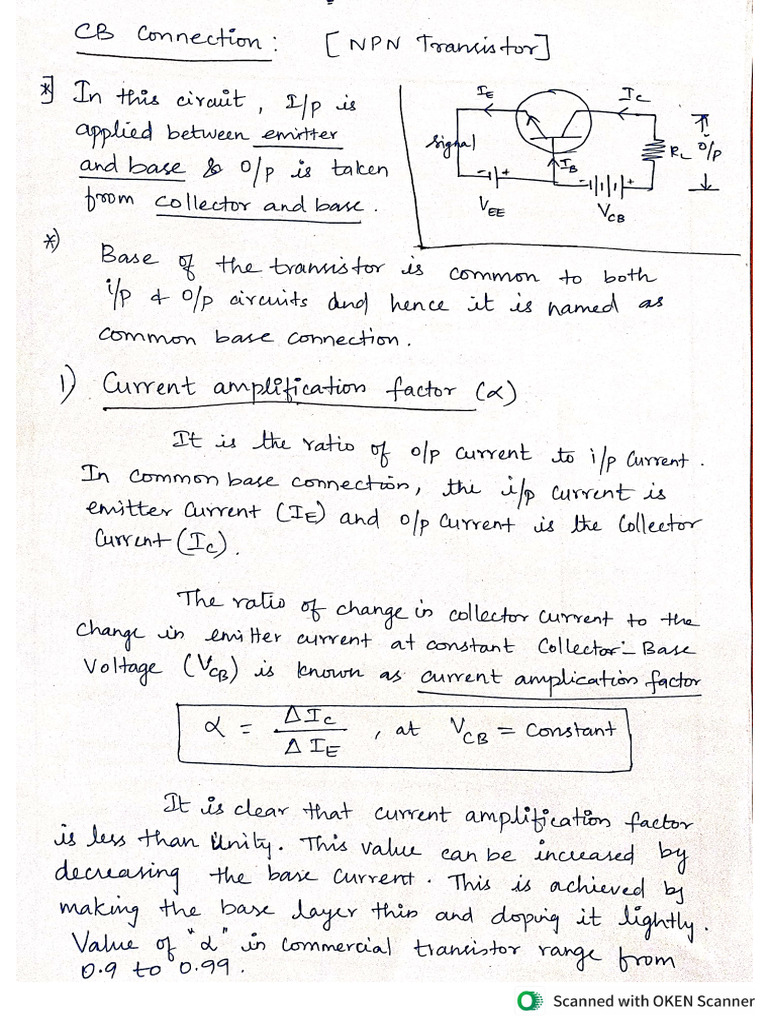 CB Connection: [NPN Transistor]
*] In this circuit, I/p is
applied between emitter
and base & O/p is taken
from collector and base.
IE
IC
signal
RL
O/p
IB
VEE
VCB
*) Base of the transistor is common to both
i/p & o/p circuits and hence it is named as
common base connection.
1) Current amplification factor (α)
It is the ratio of o/p current to i/p current.
In common base connection, the i/p current is
emitter current (IE) and o/p current is the Collector
Current (Ic).
The ratio of change in collector current to the
change in emitter current at constant Collector-Base
Voltage (VCB) is known as current amplication factor
α = ΔIc / ΔIE , at VCB = Constant
It is clear that current amplification factor
is less than Unity. This value can be increased by
decreasing the base current. This is achieved by
making the base layer thin and doping it lightly.
Value of "α" in commercial transistor range from
0.9 to 0.99.
Scanned with OKEN Scanner